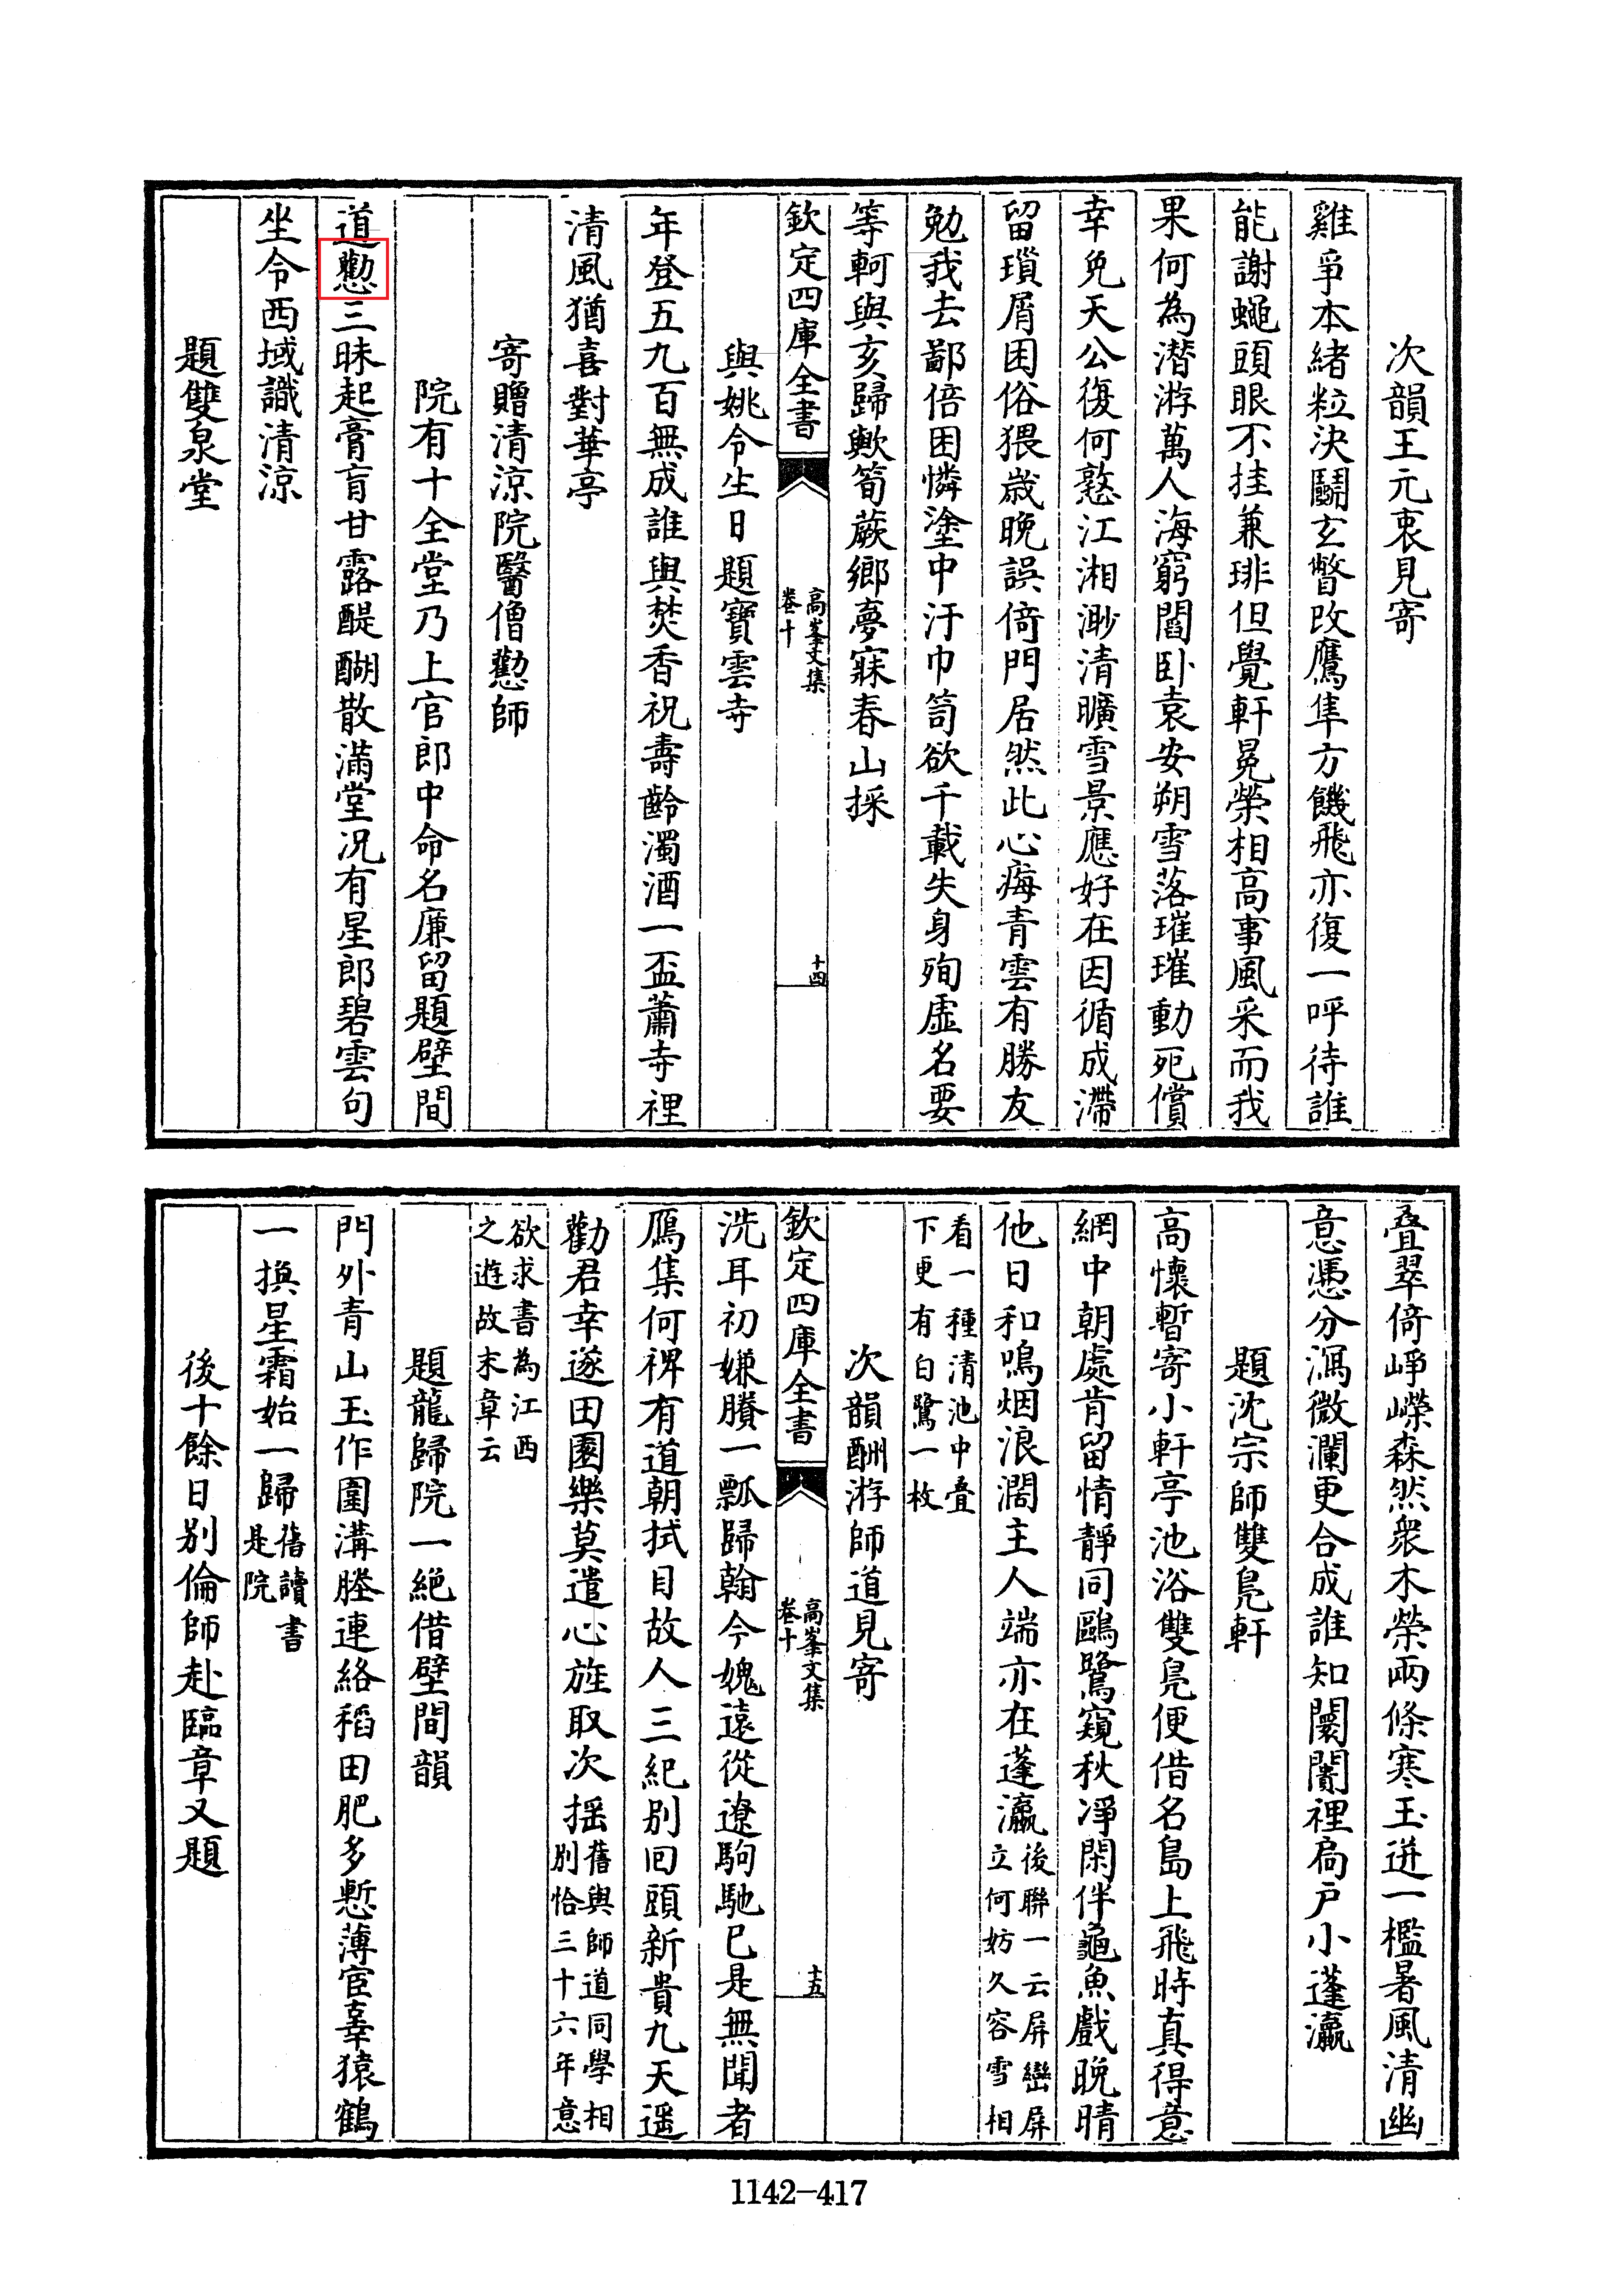 次韻王元衷見寄
雞爭本緒粒決鬭玄瞥改鷹隼方饑飛亦復一呼待誰
能謝蠅頭眼不挂兼琲但覺軒冕榮相高事風采而我
果何為潛游萬人海窮閻卧袁安朔雪落璀璀動死償
幸免天公復何憝江湘渺清曠雪景應好在因循成滯
留瑣屑困俗猥歲晚誤倚門居然此心痗青雲有勝友
勉我去鄙倍困憐塗中汙巾笥欲千載失身殉虛名要
等軻與亥歸歟筍蕨鄉夢寐春山採
欽定四庫全書
高峯文集
卷十
十四
與姚令生日題寶雲寺
年登五九百無成誰與焚香祝壽齡濁酒一盃蕭寺裡
清風猶喜對華亭
寄贈清涼院醫僧懃師
院有十全堂乃上官郎中命名廉留題壁間
道懃三昧起膏肓甘露醍醐散滿堂况有星郎碧雲句
坐令西域識清涼
題雙泉堂
叠翠倚崢嶸森然衆木榮兩條寒玉迸一檻暑風清幽
意憑分瀉微瀾更合成誰知闤闠裡扃户小蓬瀛
題沈宗師雙鳧軒
高懷暫寄小軒亭池浴雙鳧便借名島上飛時真得意
網中朝處肯留情靜同鷗鷺窺秋凈閑伴龜魚戲晚晴
他日和鳴烟浪濶主人端亦在蓬瀛
後聯一云屏巒屏
立何妨久容雪相
看一種清池中叠
下更有白鷺一枚
次韻酬游師道見寄
欽定四庫全書
高峯文集
卷十
十五
洗耳初嫌賸一瓢歸翰今媿遠從遼駒馳已是無聞者
鴈集何裨有道朝拭目故人三紀别回頭新貴九天遥
勸君幸遂田園樂莫遣心旌取次揺
舊與師道同學相
别恰三十六年意
欲求書為江西
之遊故末章云
題龍歸院一絶借壁間韻
門外青山玉作圍溝塍連絡稻田肥多慙薄宦辜猿鶴
一換星霜始一歸
舊讀書
是院
後十餘日别倫師赴臨章又題
1142-417